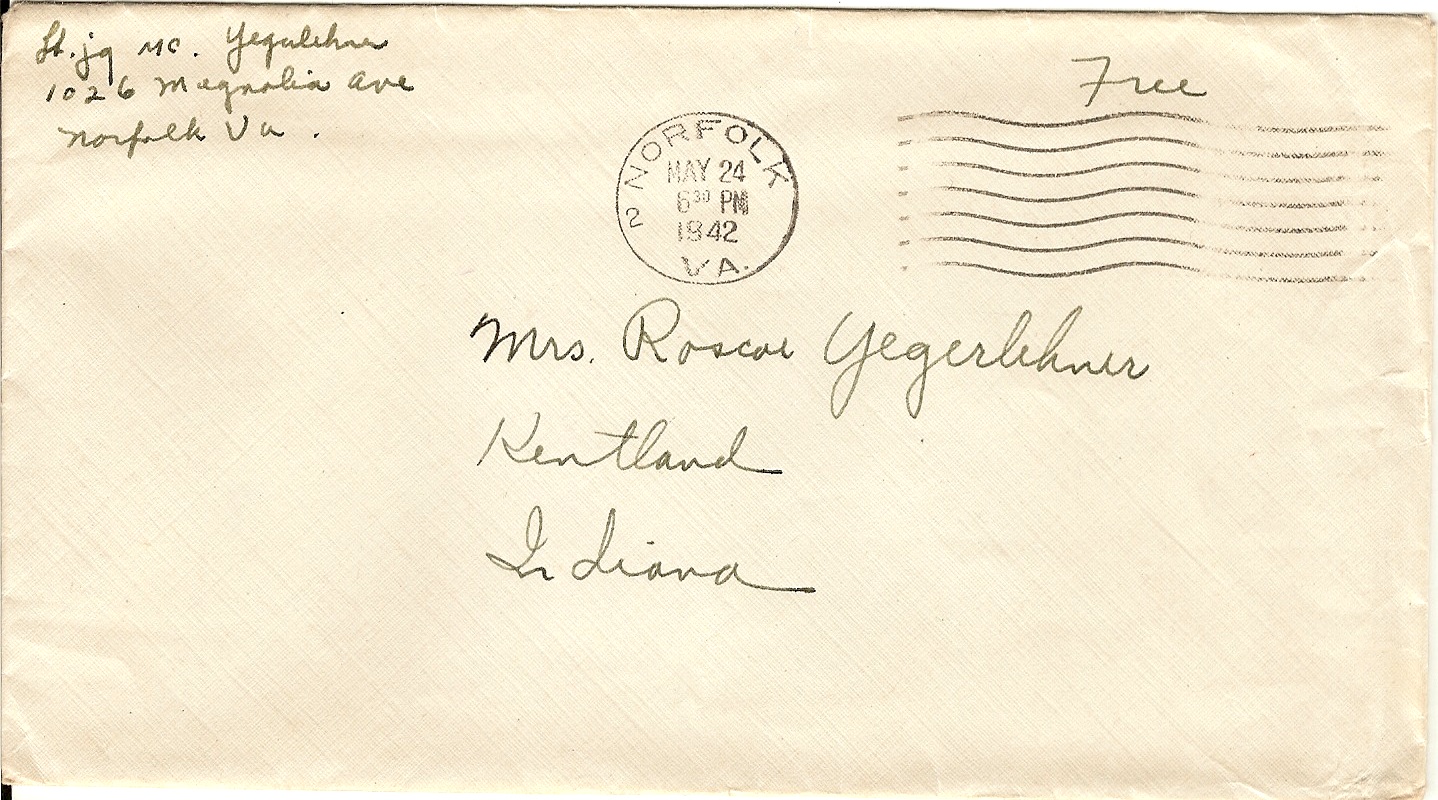 Lt. jg MC. Yegerlehner
1026 Magnolia Ave
Norfolk Va.
Free
2 NORFOLK
MAY 24
6 30 PM
1942
VA.
Mrs. Roscoe Yegerlehner
Kentland
Indiana